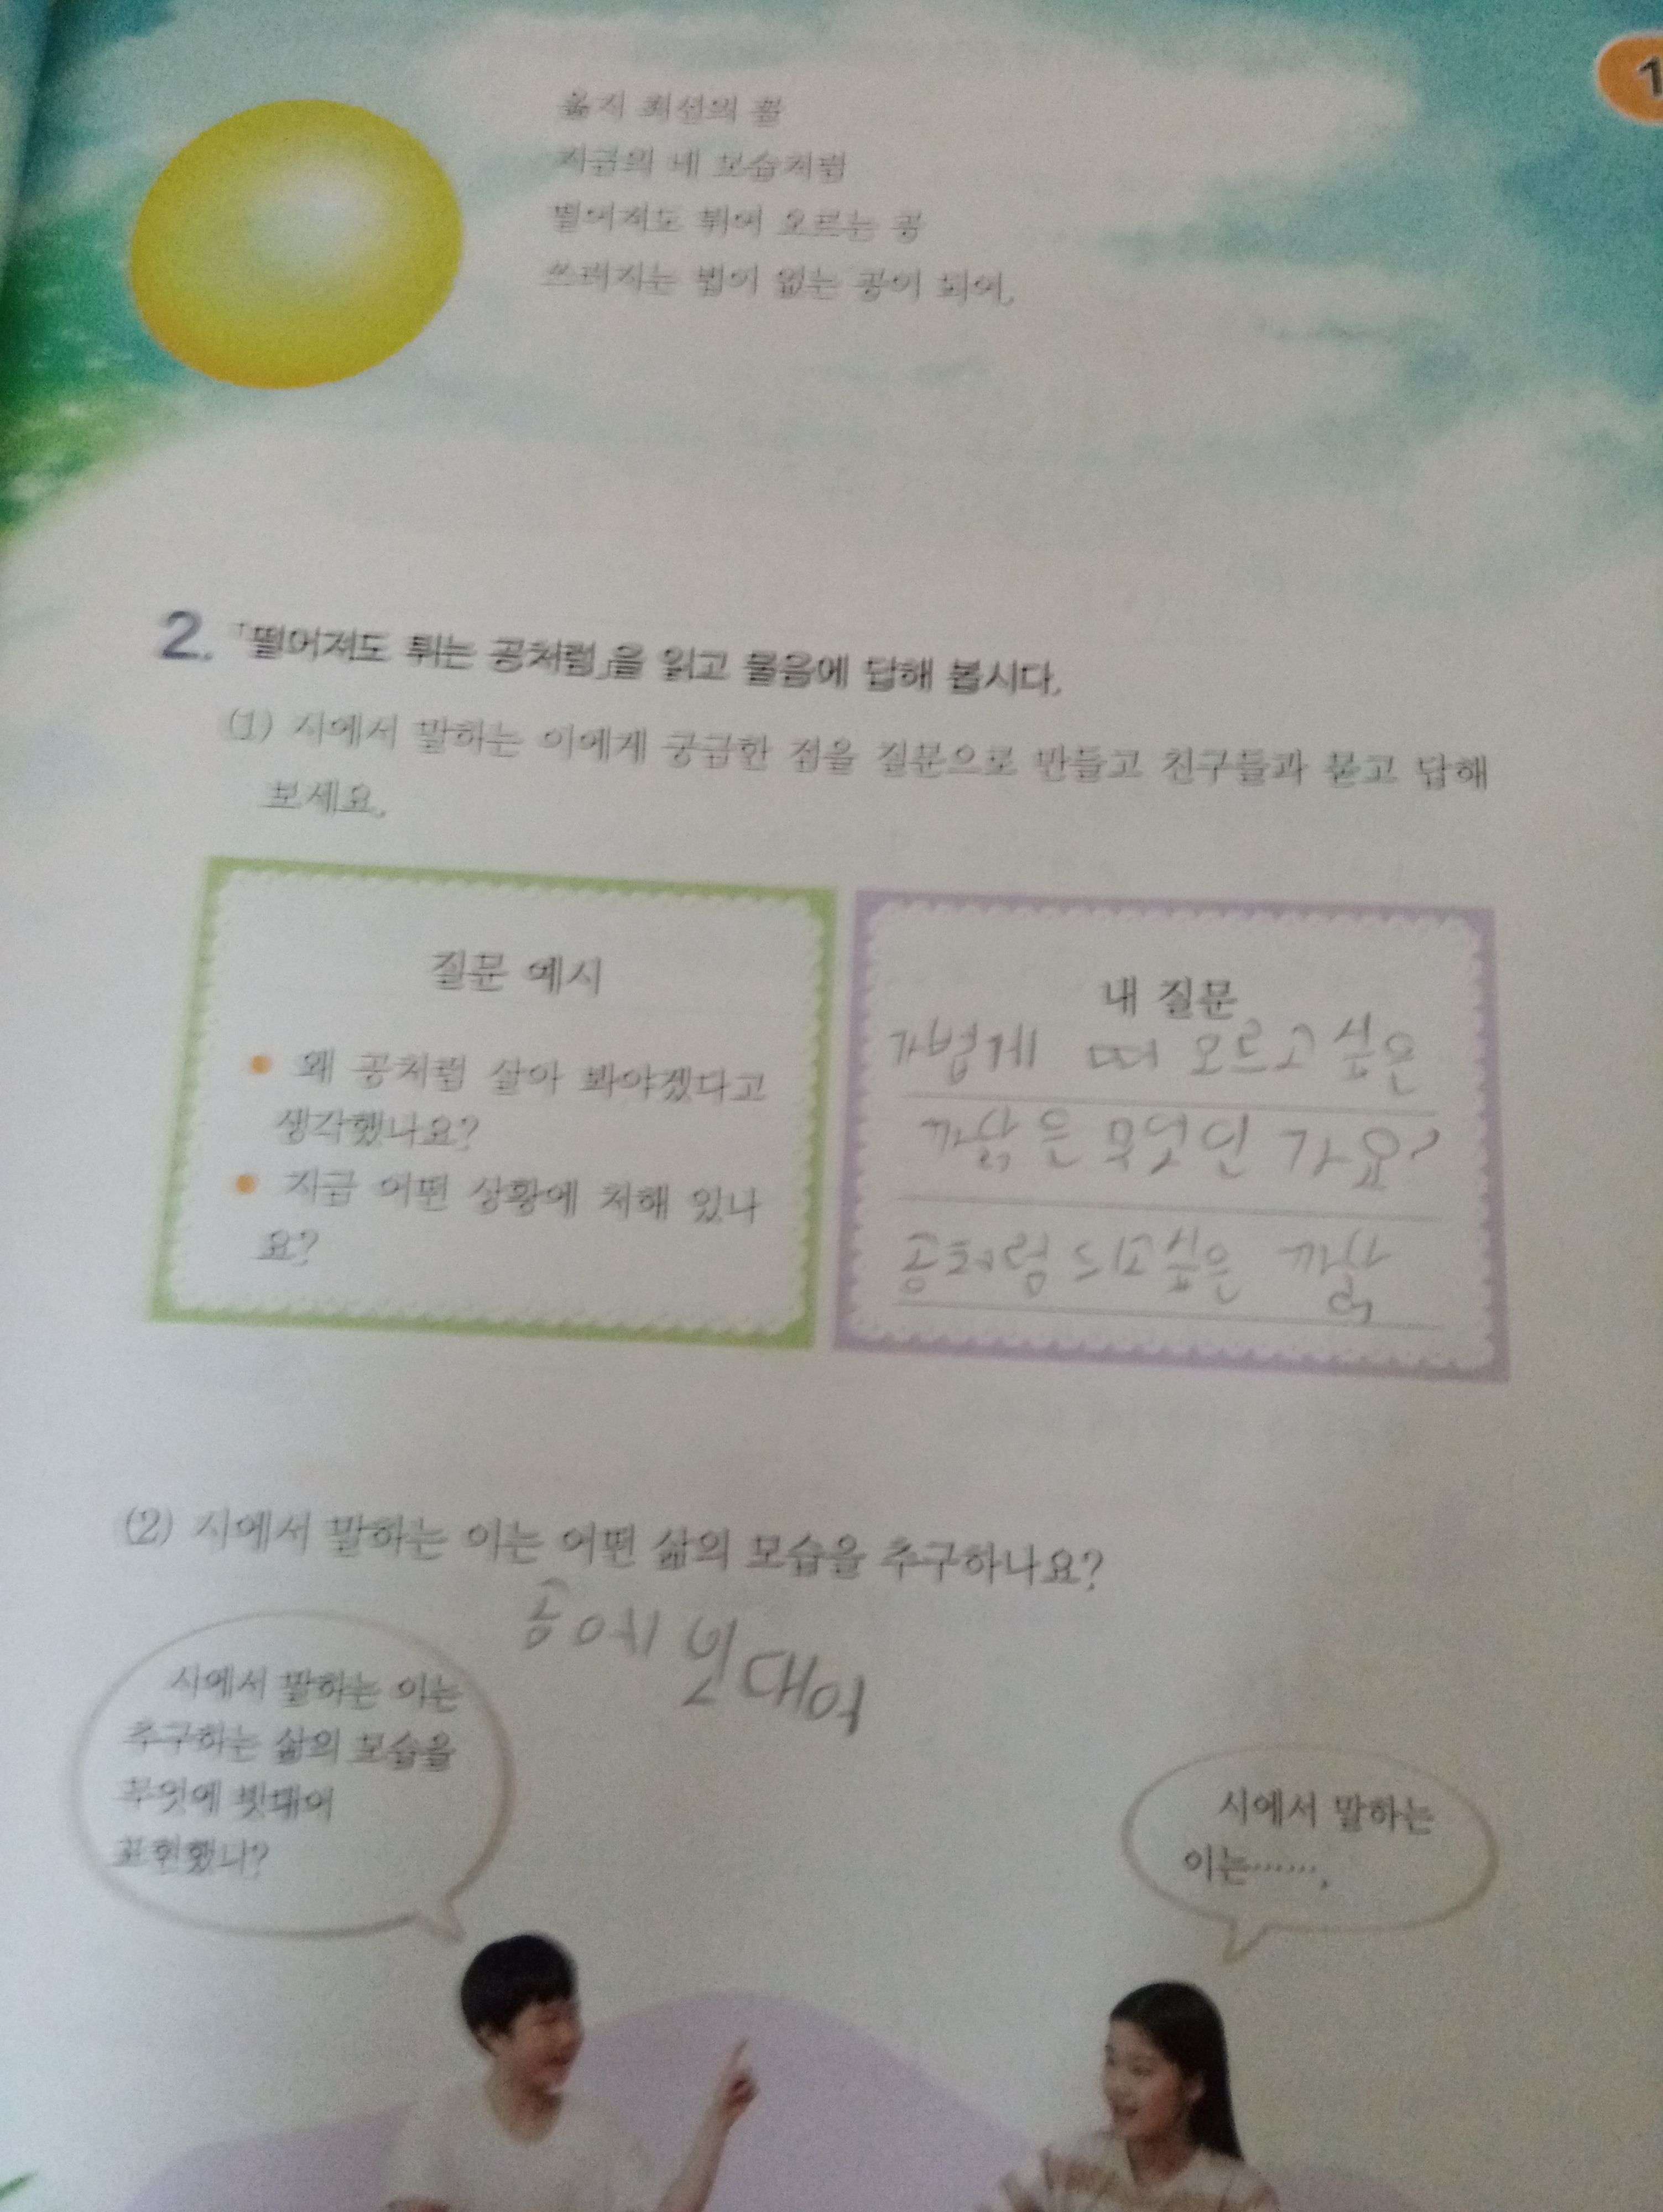 1
옳지 최선의 꼴
지금의 네 모습처럼
떨어져도 튀어 오르는 공
쓰러지는 법이 없는 공이 되어.
2. 「떨어져도 튀는 공처럼」을 읽고 물음에 답해 봅시다.
(1) 시에서 말하는 이에게 궁금한 점을 질문으로 만들고 친구들과 묻고 답해
보세요.
질문 예시
• 왜 공처럼 살아 봐야겠다고
생각했나요?
• 지금 어떤 상황에 처해 있나
요?
내 질문
가볍게 떠 오르고싶은
까닭은 무엇인 가요?
공처럼 되고싶은 까닭
(2) 시에서 말하는 이는 어떤 삶의 모습을 추구하나요?
공에 빗대어
시에서 말하는 이는
추구하는 삶의 모습을
무엇에 빗대어
표현했니?
시에서 말하는
이는…….